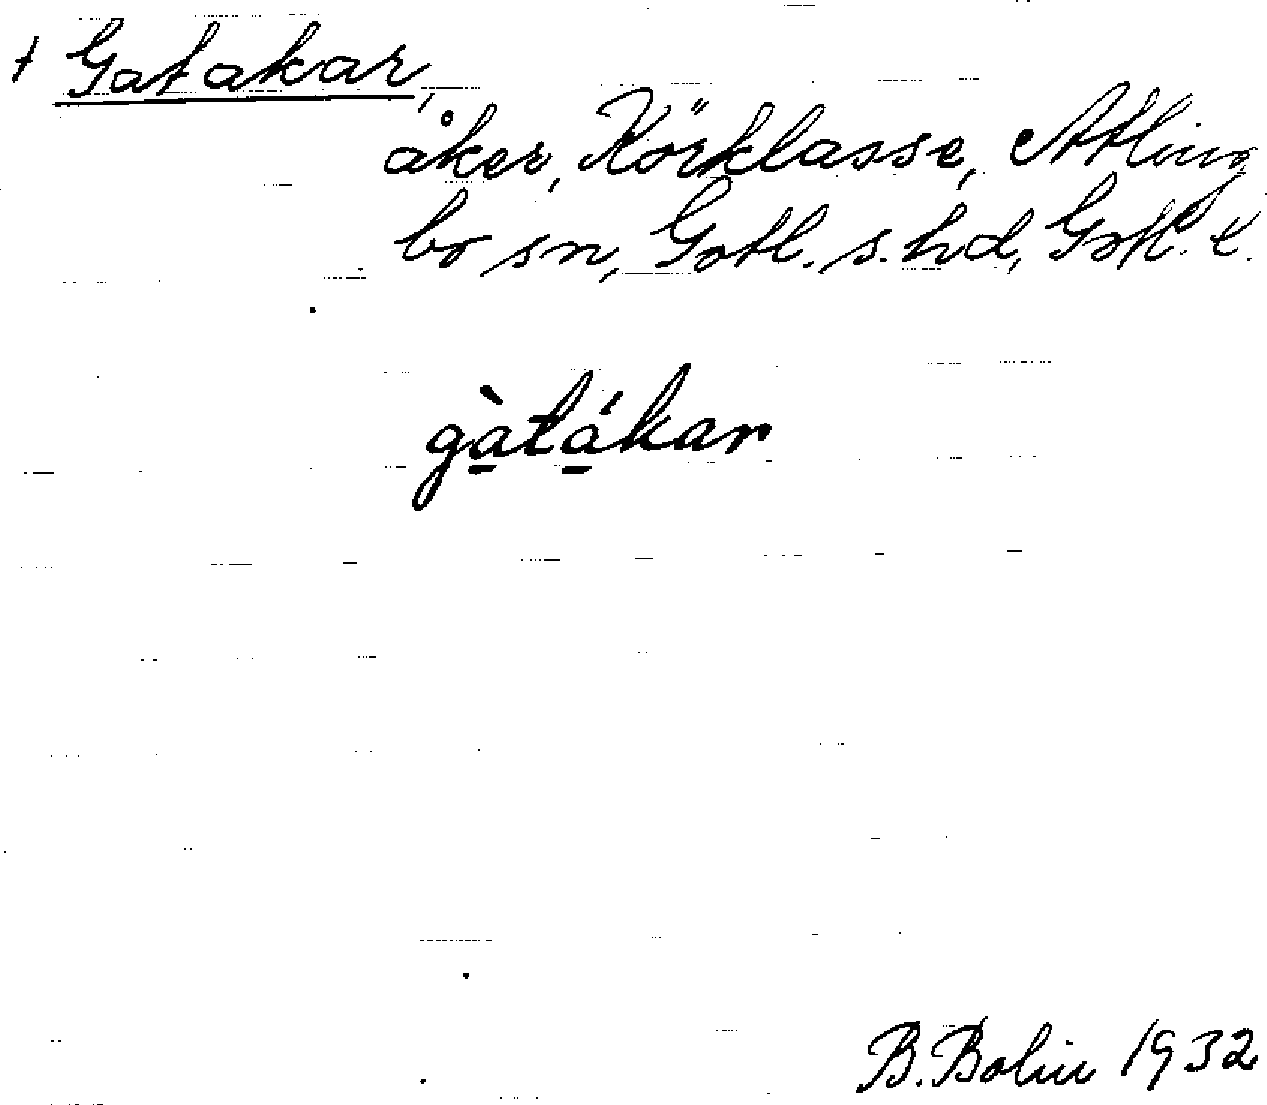 † Gatakar,
åker, Körklasse, Atling
bo sn, Gotl. s. hd, Gotl. l.
gàtákar
B. Bolin 1932